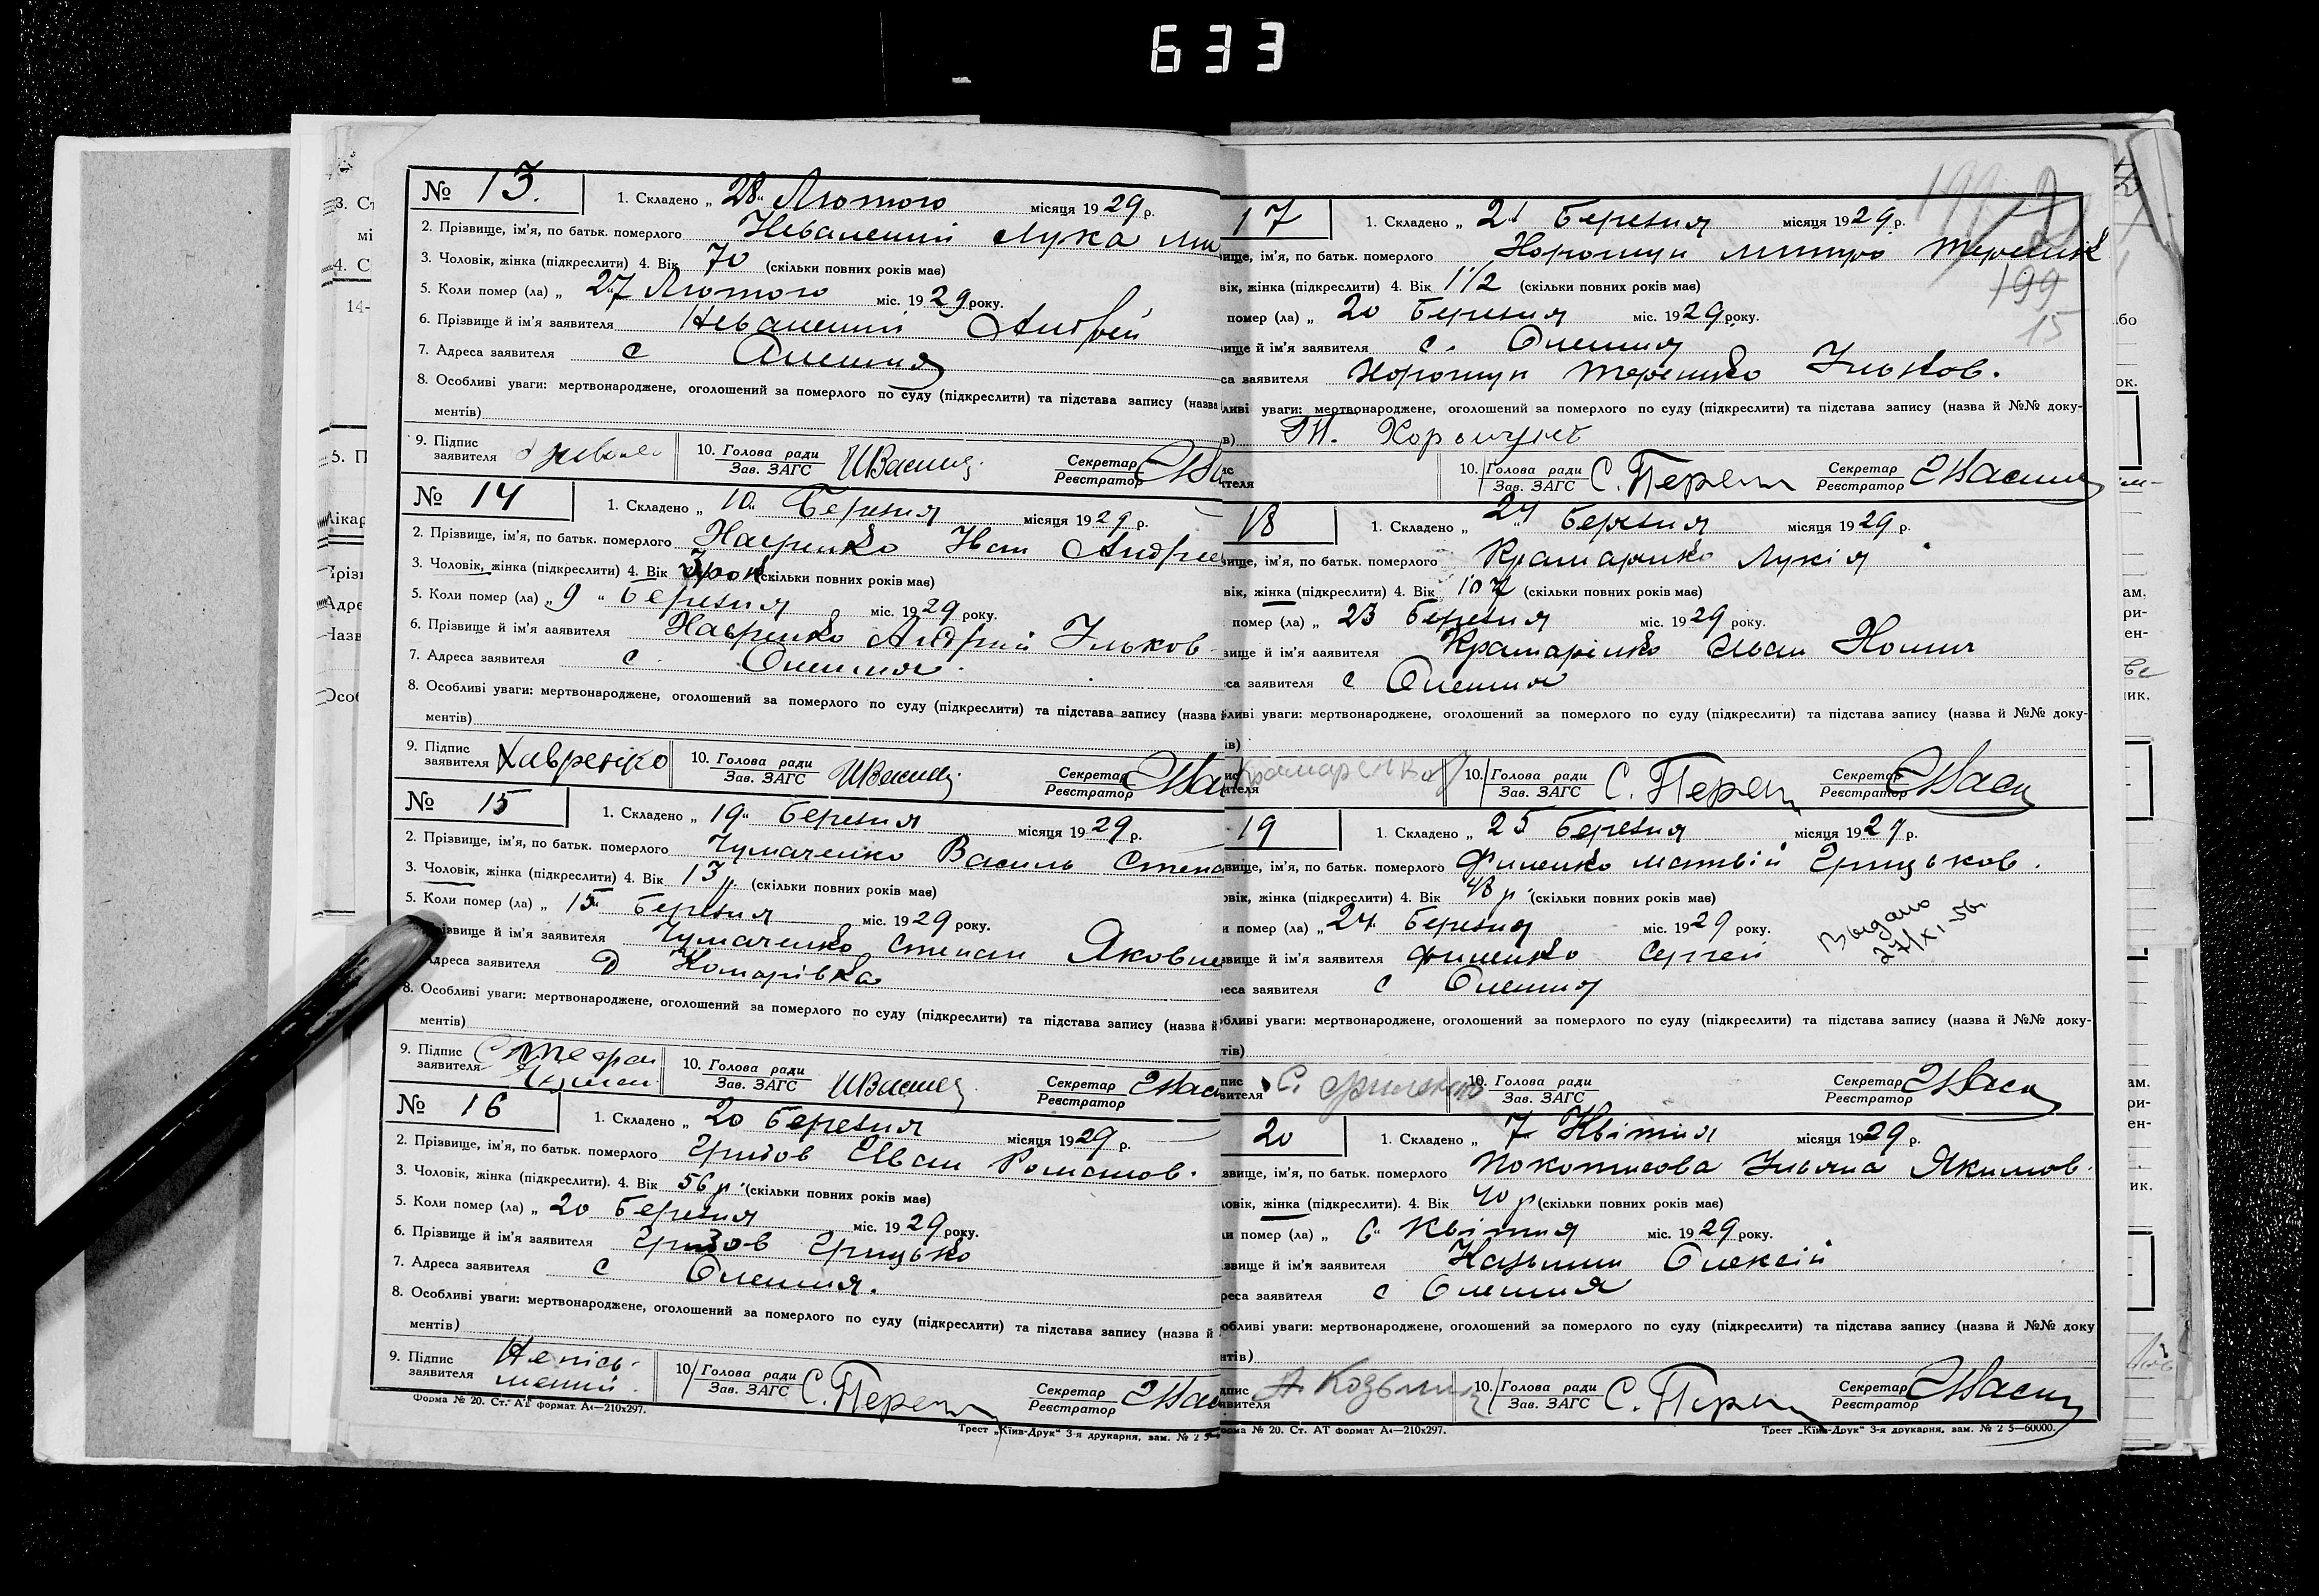 633
№ 13.
1. Складено „ 28 “ Лютого місяця 1929 р.
2. Прізвище, ім'я, по батьк. померлого Лука
3. Чоловік, жінка (підкреслити) 4. Вік 70 (скільки повних років має)
5. Коли помер (ла) „ 27 “ Лютого міс. 1929 року.
6. Прізвище й ім'я заявителя Андрей
7. Адреса заявителя с Олешня
8. Особливі уваги: мертвонароджене, оголошений за померлого по суду (підкреслити) та підстава запису (назва
ментів)
9. Підпис заявителя
10. Голова ради
Зав. ЗАГС
Секретар
Реєстратор
№ 14
1. Складено „ 10 “ Березня місяця 1929 р.
2. Прізвище, ім'я, по батьк. померлого Хавренко Іван Андрее
3. Чоловік, жінка (підкреслити) 4. Вік (скільки повних років має)
5. Коли помер (ла) „ 9 “ Березня міс. 1929 року.
6. Прізвище й ім'я заявителя Хавренко Андрій Ільков
7. Адреса заявителя с. Олешня
8. Особливі уваги: мертвонароджене, оголошений за померлого по суду (підкреслити) та підстава запису (назва
ментів)
9. Підпис заявителя Хавренко
10. Голова ради
Зав. ЗАГС
Секретар
Реєстратор
№ 15
1. Складено „ 19 “ Березня місяця 1929 р.
2. Прізвище, ім'я, по батьк. померлого Чумаченко Василь Степа
3. Чоловік, жінка (підкреслити) 4. Вік 13 р. (скільки повних років має)
5. Коли помер (ла) „ 15 “ Березня міс. 1929 року.
прізвище й ім'я заявителя Чумаченко Степан Яковле
Адреса заявителя Комарівка
8. Особливі уваги: мертвонароджене, оголошений за померлого по суду (підкреслити) та підстава запису (назва й
ментів)
9. Підпис заявителя
10. Голова ради
Зав. ЗАГС
Секретар
Реєстратор
№ 16
1. Складено „ 20 Березня місяця 1929 р.
2. Прізвище, ім'я, по батьк. померлого Іван Романов.
3. Чоловік, жінка (підкреслити). 4. Вік 56 р. (скільки повних років має)
5. Коли помер (ла) „ 20 Березня міс. 1929 року.
6. Прізвище й ім'я заявителя Грицько
7. Адреса заявителя с Олешня.
8. Особливі уваги: мертвонароджене, оголошений за померлого по суду (підкреслити) та підстава запису (назва й
ментів)
9. Підпис заявителя Непісьменний
10. Голова ради
Зав. ЗАГС С. Переп
Секретар
Реєстратор
Форма № 20. Ст. АТ формат А4—210х297.
Трест „Київ-Друк“ 3-я друкарня, зам. № 2 5
17
1. Складено „ 21 Березня місяця 1929 р.
ище, ім'я, по батьк. померлого Митро
вік, жінка (підкреслити) 4. Вік 1 1/2 (скільки повних років має)
помер (ла) „ 20 Березня міс. 1929 року.
199
15
ище й ім'я заявителя с. Олешня
са заявителя Терешко Ільков.
ливі уваги: мертвонароджене, оголошений за померлого по суду (підкреслити) та підстава запису (назва й №№ доку-
в)
10. Голова ради
Зав. ЗАГС С. Переп
Секретар
Реєстратор
18
1. Складено „ 24 “ Березня місяця 1929 р.
ище, ім'я, по батьк. померлого Крамаренко Лукія
вік, жінка (підкреслити) 4. Вік (скільки повних років має)
помер (ла) „ 23 Березня міс. 1929 року.
вище й ім'я заявителя Крамаренко Іван
са заявителя с Олешня
ливі уваги: мертвонароджене, оголошений за померлого по суду (підкреслити) та підстава запису (назва й №№ доку-
ів)
Крамаренко
10. Голова ради
Зав. ЗАГС С. Переп
Секретар
Реєстратор
19
1. Складено „ 25 Березня місяця 1929 р.
вище, ім'я, по батьк. померлого Филенко Матвій Грицьков.
овік, жінка (підкреслити) 4. Вік 48 р. (скільки повних років має)
и помер (ла) „ 24 “ Березня міс. 1929 року.
Выдано
27/XI-56г.
вище й ім'я заявителя Филенко Сергей
реса заявителя с Олешня
обливі уваги: мертвонароджене, оголошений за померлого по суду (підкреслити) та підстава запису (назва й №№ доку-
тів)
С. Филенко
10. Голова ради
Зав. ЗАГС
Секретар
Реєстратор
20
1. Складено „ 7 “ Квітня місяця 1929 р.
звище, ім'я, по батьк. померлого Якимов.
ловік, жінка (підкреслити). 4. Вік 40 р (скільки повних років має)
ли помер (ла) „ 6 “ Квітня міс. 1929 року.
звище й ім'я заявителя Казьмин Олексій
реса заявителя с Олешня
обливі уваги: мертвонароджене, оголошений за померлого по суду (підкреслити) та підстава запису (назва й №№ доку
нтів)
А. Козьмин
10. Голова ради
Зав. ЗАГС С. Переп
Секретар
Реєстратор
орма № 20. Ст. АТ формат А4—210х297.
Трест „Київ-Друк“ 3-я друкарня, зам. № 2 5—60000.